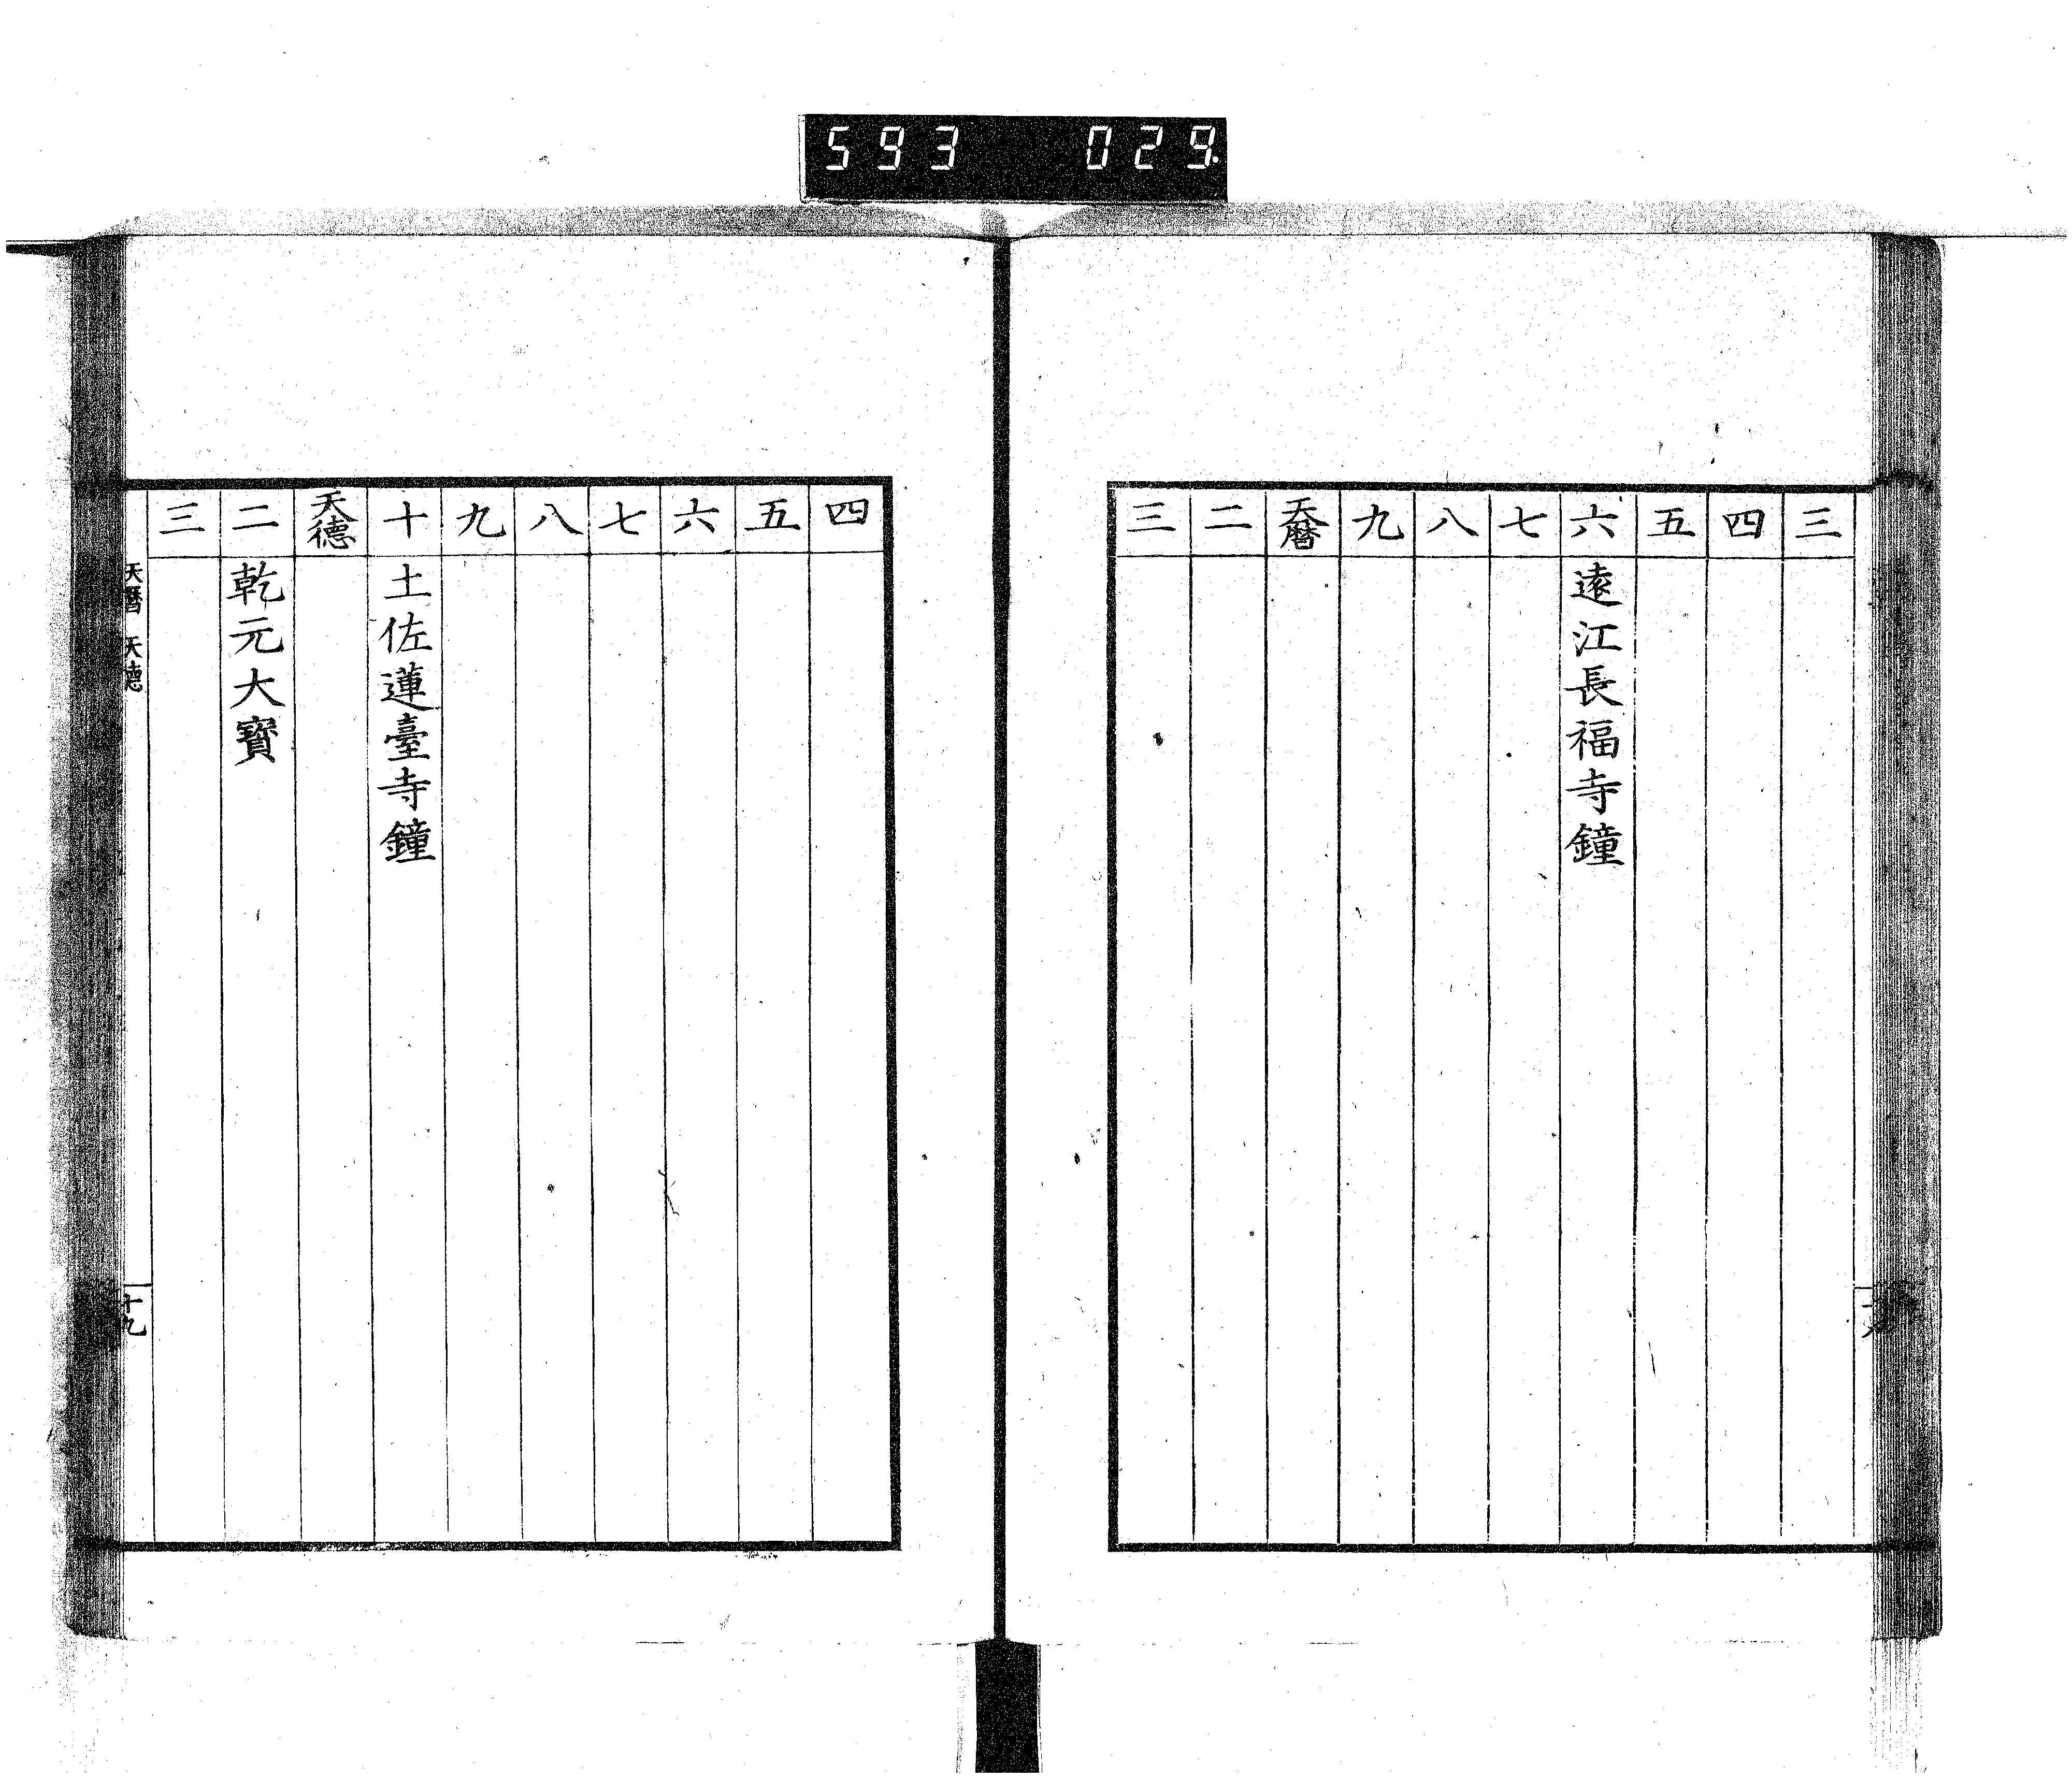 593 029
三
四
五
六
遠江長福寺鐘
七
八
九
天曆
二
三
四
五
六
七
八
九
十
土佐蓮臺寺鐘
天德
二
乾元大寳
三
天曆 天德
十九